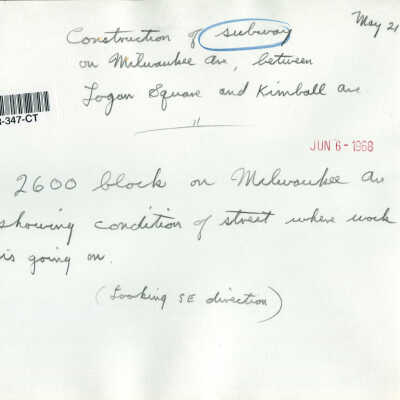 May 21
Construction of subway
on Milwaukee Ave, between
Logan Square and Kimball Ave.
3-347-CT
"
JUN 6 - 1968
2600 block on Milwaukee Av
showing condition of street where work
is going on.
(Looking SE direction)